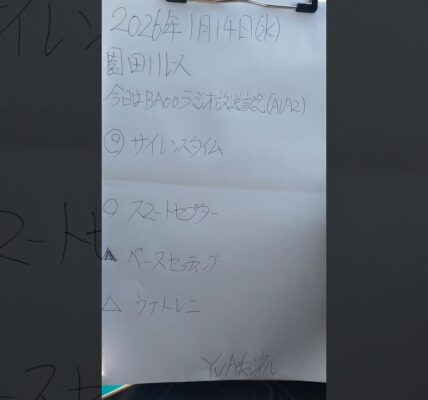 2026年1月14日(水)
園田11レース
今日はBAOOラジオ放送記念(A1A2)
◎サイレンスタイム
○スマートセプター
▲ペースセッティング
△ヴァトレニ